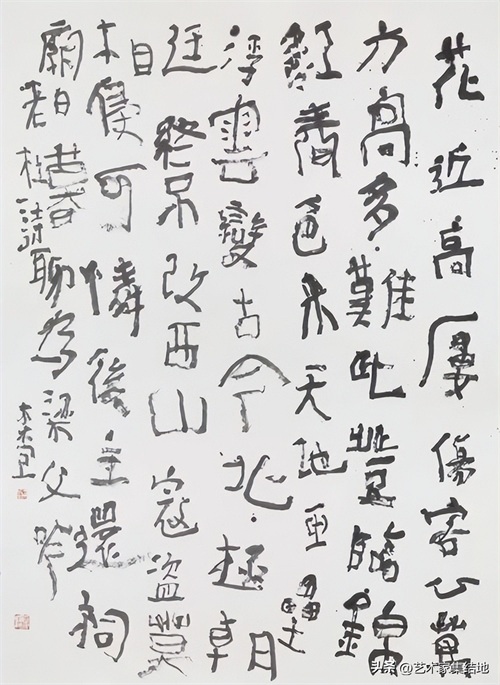 花近高屢傷客心萬
方高多難此登臨錦
春色来天地玉壘
浮雲變古今北極朝
廷終不改西山寇盜莫
相侵可憐後主還祠
廟日暮聊為梁父吟
头条 @艺术家集结地